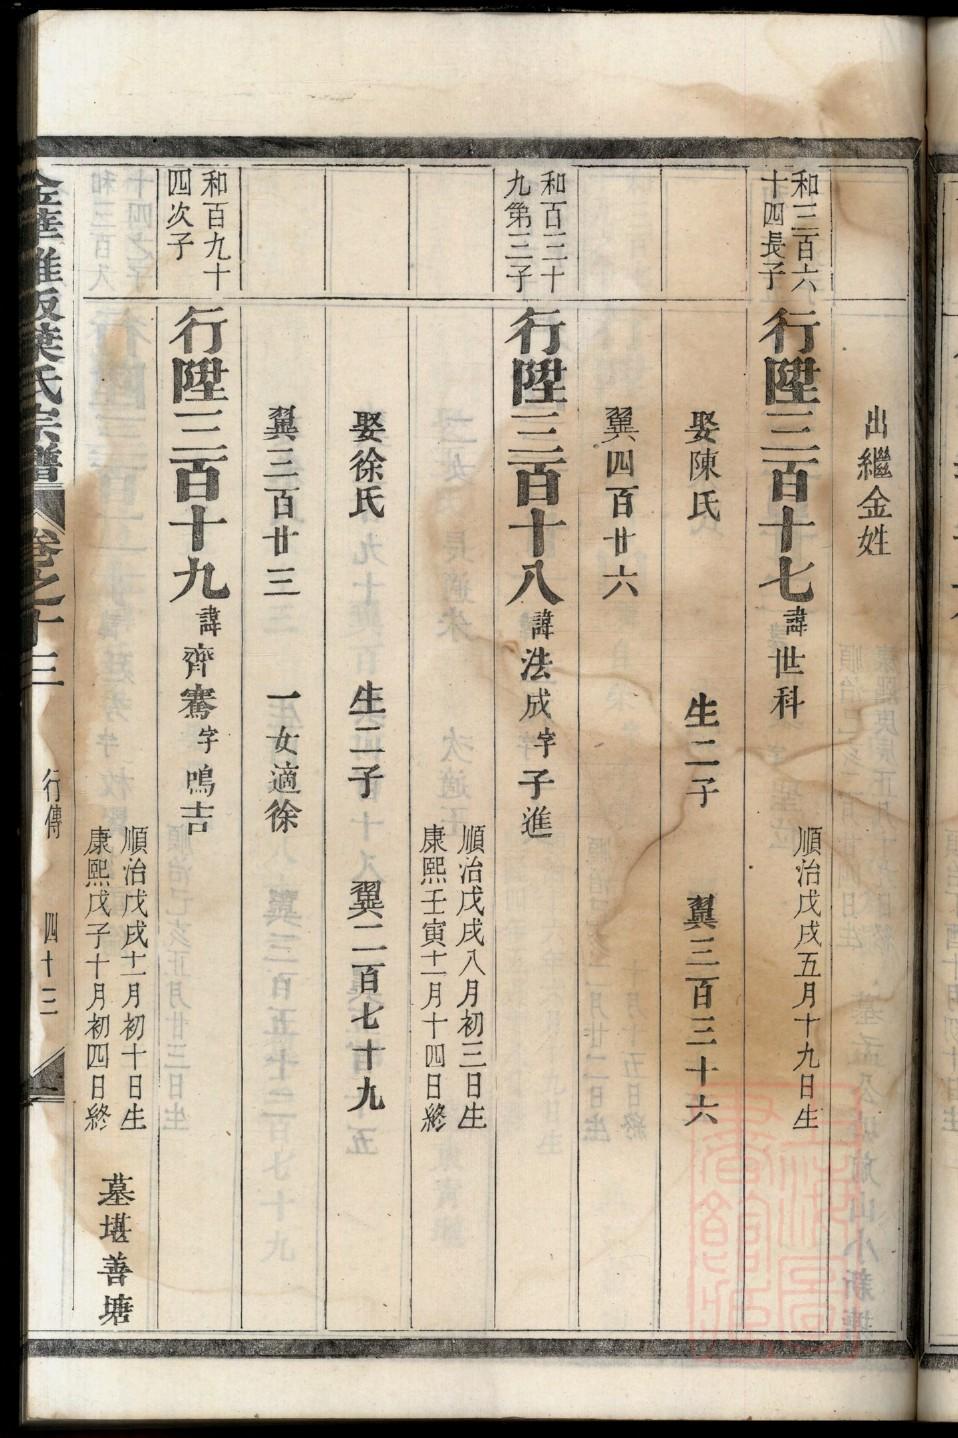 出繼金姓
和三百六
十四長子
行陞三百十七諱世科
順治戊戌五月十九日生
娶陳氏 生二子 翼三百三十六
翼四百廿六
和百三十
九第三子
行陞三百十八諱法成字子進
順治戊戌八月初三日生
康熙壬寅十一月十四日終
娶徐氏 生二子 翼二百七十九
翼三百廿三 一女適徐
和百九十
四次子
行陞三百十九諱齊騫字鳴吉
順治戊戌十一月初十日生
康熙戊子十月初四日終
墓堪善塘
葉氏宗譜 卷之十三 行傳 四十三